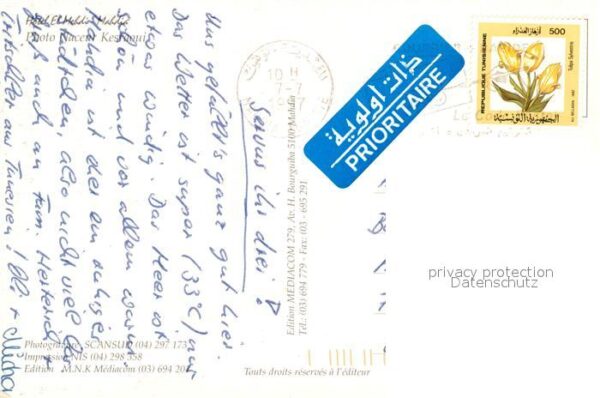 Hôtel El Mehdi Mahdia
Photo Naceur Kesraoui
Servus ihr drei!
Uns gefällt's ganz gut hier.
Das Wetter ist super (33°C), nur
etwas windig. Das Meer ist
schön und vor allem warm.
Mahdia ist eher ein ruhiges
Städtchen, also nicht viel los.
auch an Fam.
aus Tunesien!
Photogravure SCANSUD (04) 297 173
Impression NIS (04) 298 558
Edition M.N.K Médiacom (03) 694 20
Edition MEDIACOM 279, Av. H. Bourguiba 5100 Mahdia
Tel.: (03) 694 779 - Fax: (03 - 695 291
Touts droits réservés à l'éditeur
10 H
7-7
ذات أولوية
PRIORITAIRE
500
REPUBLIQUE TUNISIENNE
Tulipa Sylvestris
الجمهورية التونسية
privacy protection
Datenschutz